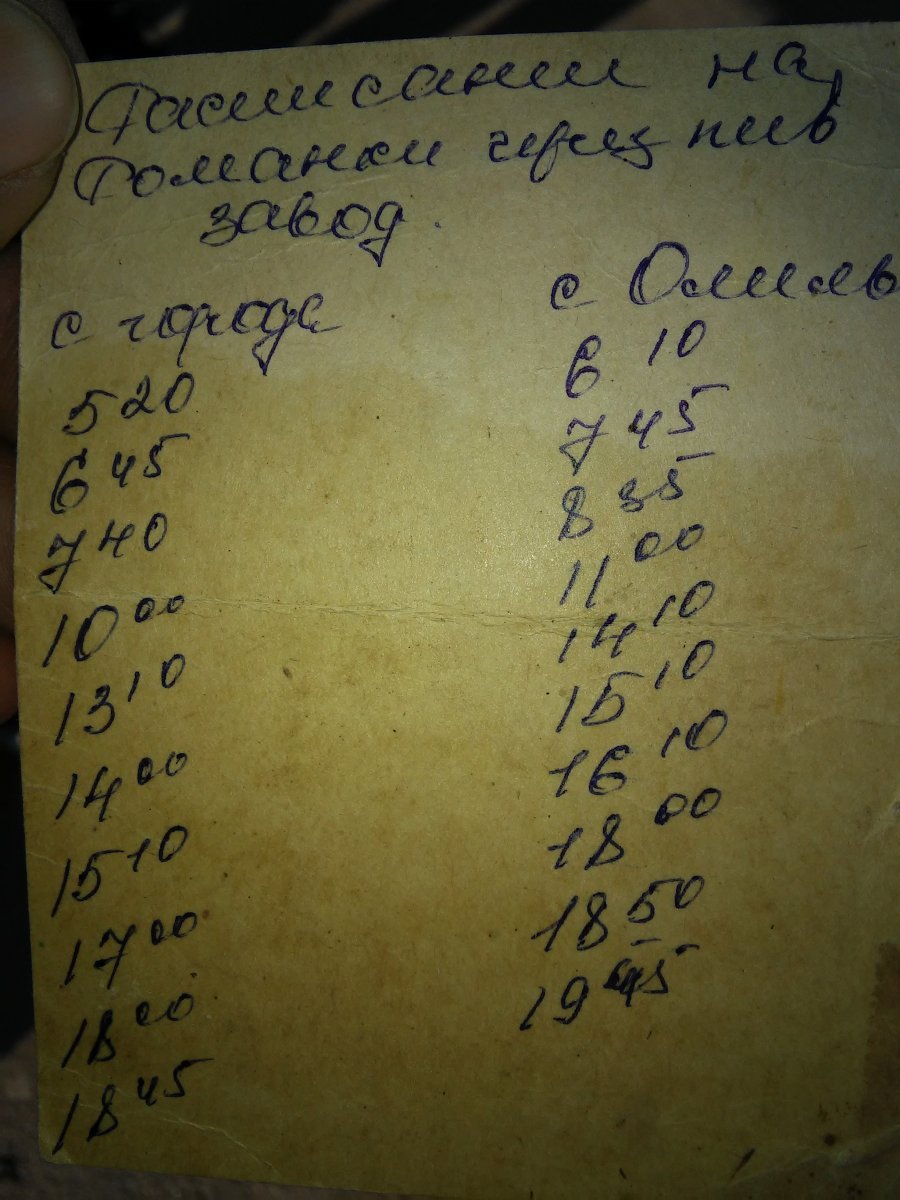 Расписании на
Романки через пив
завод.
с города
5 20
6 45
7 40
10 00
13 10
14 00
15 10
17 00
18 00
18 45
с Олиль
6 10
7 45
8 35
11 00
14 10
15 10
16 10
18 00
18 50
19 45